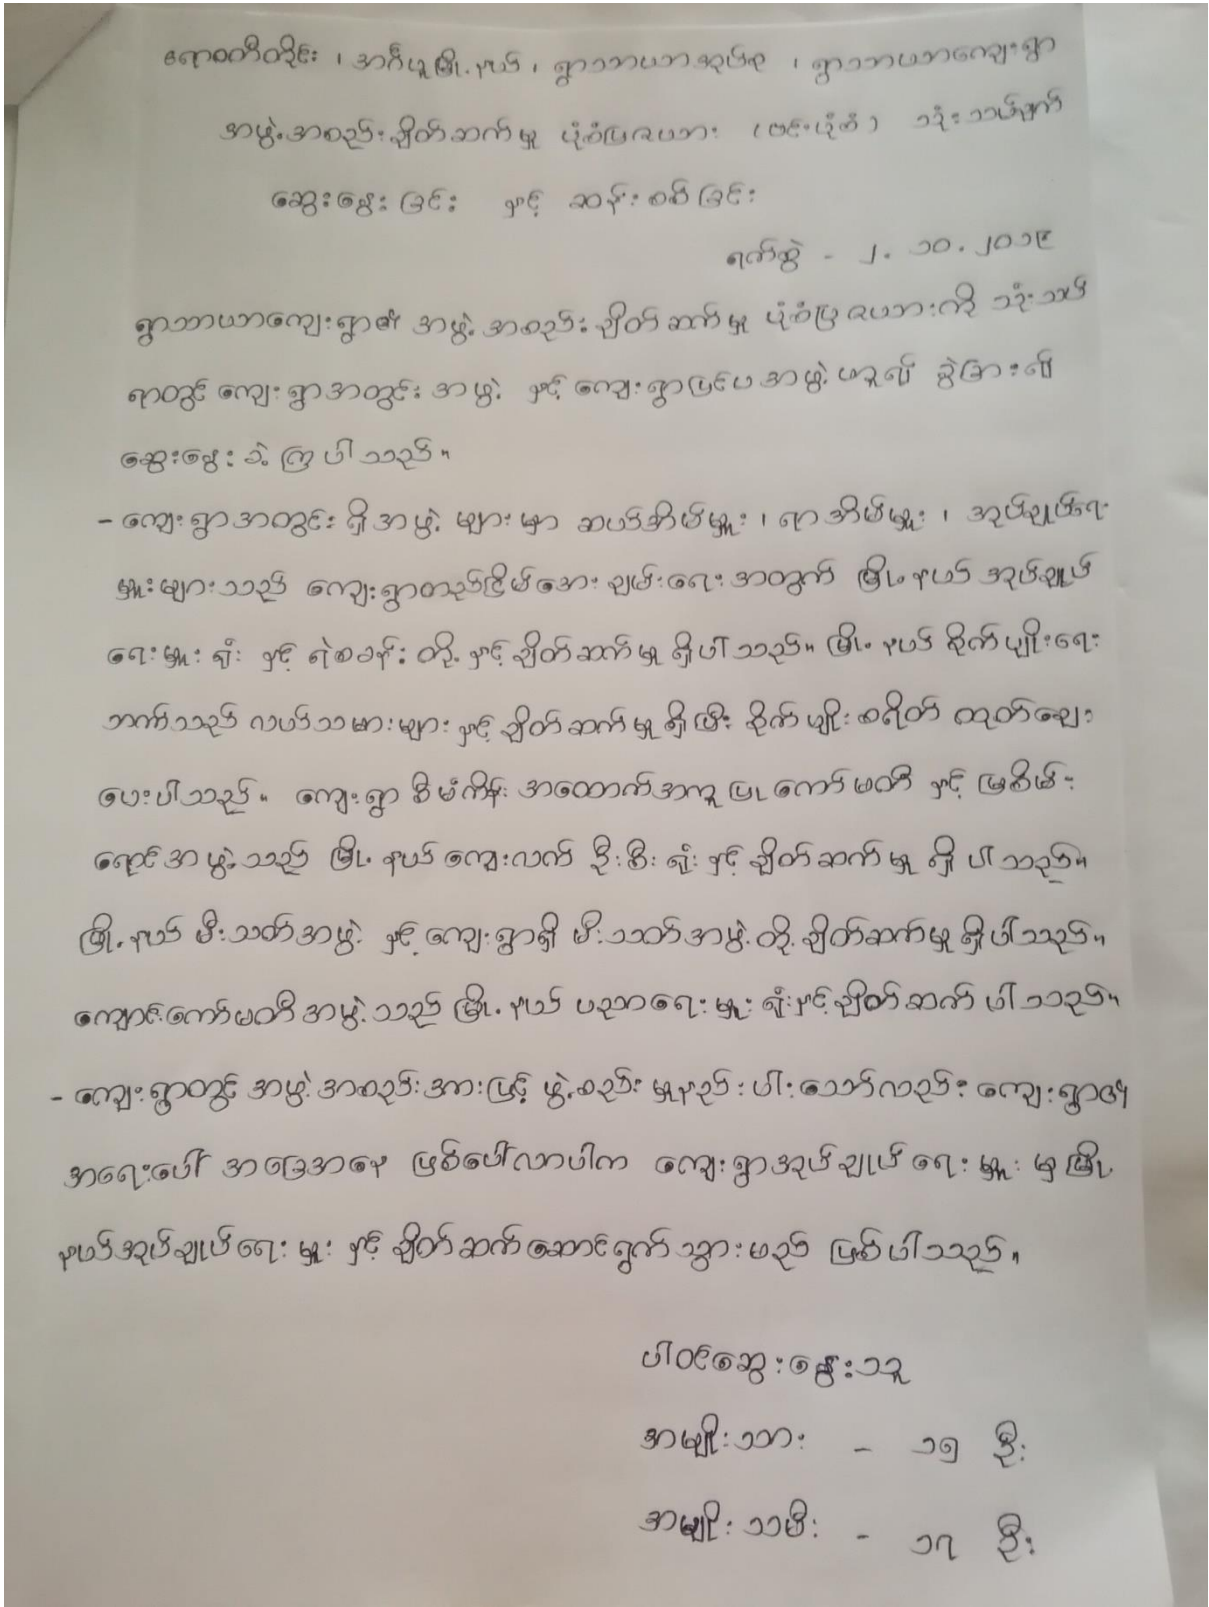 ဧရာဝတီတိုင်း ၊ အင်္ဂပူမြို့နယ် ၊ ရွာသာယာအုပ်စု ၊ ရွာသာယာကျေးရွာ
အဖွဲ့အစည်းချိတ်ဆက်မှု ပုံစံပြဇယား (ဗင်းပုံစံ) သုံးသပ်ချက်
ဆွေးနွေးခြင်း နှင့် ဆန်းစစ်ခြင်း
ရက်စွဲ - ၂.၁၀.၂၀၁၉
ရွာသာယာကျေးရွာ၏ အဖွဲ့အစည်းချိတ်ဆက်မှု ပုံစံပြဇယားကို သုံးသပ်
ရာတွင် ကျေးရွာအတွင်းအဖွဲ့ နှင့် ကျေးရွာပြင်ပအဖွဲ့ ဟူ၍ ခွဲခြား၍
ဆွေးနွေးခဲ့ကြပါသည်။
- ကျေးရွာအတွင်းရှိအဖွဲ့များမှာ ဆယ်အိမ်မှူး ၊ ရာအိမ်မှူး ၊ အုပ်ချုပ်ရေး
မှူးများသည် ကျေးရွာတည်ငြိမ်အေးချမ်းရေးအတွက် မြို့နယ်အုပ်ချုပ်
ရေးမှူးရုံး နှင့် ရဲစခန်းတို့နှင့်ချိတ်ဆက်မှုရှိပါသည်။ မြို့နယ် စိုက်ပျိုးရေး
ဘက်သည် လယ်သမားများနှင့် ချိတ်ဆက်မှုရှိပြီး စိုက်ပျိုးစရိတ် ထုတ်ချေး
ပေးပါသည်။ ကျေးရွာ စီမံကိန်းအထောက်အကူပြုကော်မတီ နှင့် မြစိမ်း
ရောင်အဖွဲ့သည် မြို့နယ်ကျေးလက် ဦးစီးရုံးနှင့်ချိတ်ဆက်မှုရှိပါသည်။
မြို့နယ် မီးသတ်အဖွဲ့ နှင့် ကျေးရွာရှိ မီးသတ်အဖွဲ့တို့ ချိတ်ဆက်မှုရှိပါသည်။
ကျောင်းကော်မတီအဖွဲ့သည် မြို့နယ် ပညာရေးမှူးရုံးနှင့်ချိတ်ဆက်ပါသည်။
- ကျေးရွာတွင် အဖွဲ့အစည်းအားဖြင့် ဖွဲ့စည်းမှုနည်းပါးသော်လည်း ကျေးရွာ၏
အရေးပေါ် အခြေအနေ ဖြစ်ပေါ်လာပါက ကျေးရွာအုပ်ချုပ်ရေးမှူးမှ မြို့
နယ်အုပ်ချုပ်ရေးမှူးနှင့် ချိတ်ဆက်ဆောင်ရွက်သွားမည် ဖြစ်ပါသည်။
ပါဝင်ဆွေးနွေးသူ
အမျိုးသား - ၁၅ ဦး
အမျိုးသမီး - ၁၇ ဦး